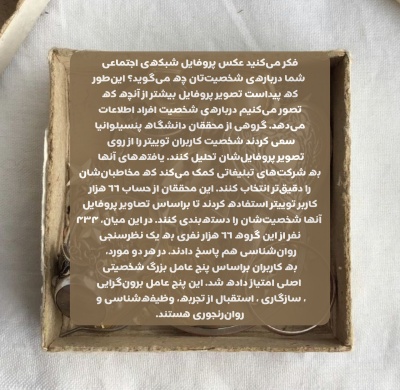 فکر می‌کنید عکس پروفایل شبکه‌ی اجتماعی
شما درباره‌ی شخصیت‌تان چه می‌گوید؟ این‌طور
که پیداست تصویر پروفایل بیشتر از آنچه که
تصور می‌کنیم درباره‌ی شخصیت افراد اطلاعات
می‌دهد. گروهی از محققان دانشگاه پنسیلوانیا
سعی کردند شخصیت کاربران توییتر را از روی
تصویر پروفایل‌شان تحلیل کنند. یافته‌های آنها
به شرکت‌های تبلیغاتی کمک می‌کند که مخاطبان‌شان
را دقیق‌تر انتخاب کنند. این محققان از حساب ۶۶ هزار
کاربر توییتر استفاده کردند تا براساس تصاویر پروفایل
آنها شخصیت‌شان را دسته‌بندی کنند. در این میان، ۴۳۴
نفر از این گروه ۶۶ هزار نفری به یک نظرسنجی
روان‌شناسی هم پاسخ دادند. در هر دو مورد،
به کاربران براساس پنج عامل بزرگ شخصیتی
اصلی امتیاز داده شد. این پنج عامل برون‌گرایی
، سازگاری ، استقبال از تجربه، وظیفه‌شناسی و
روان‌رنجوری هستند.